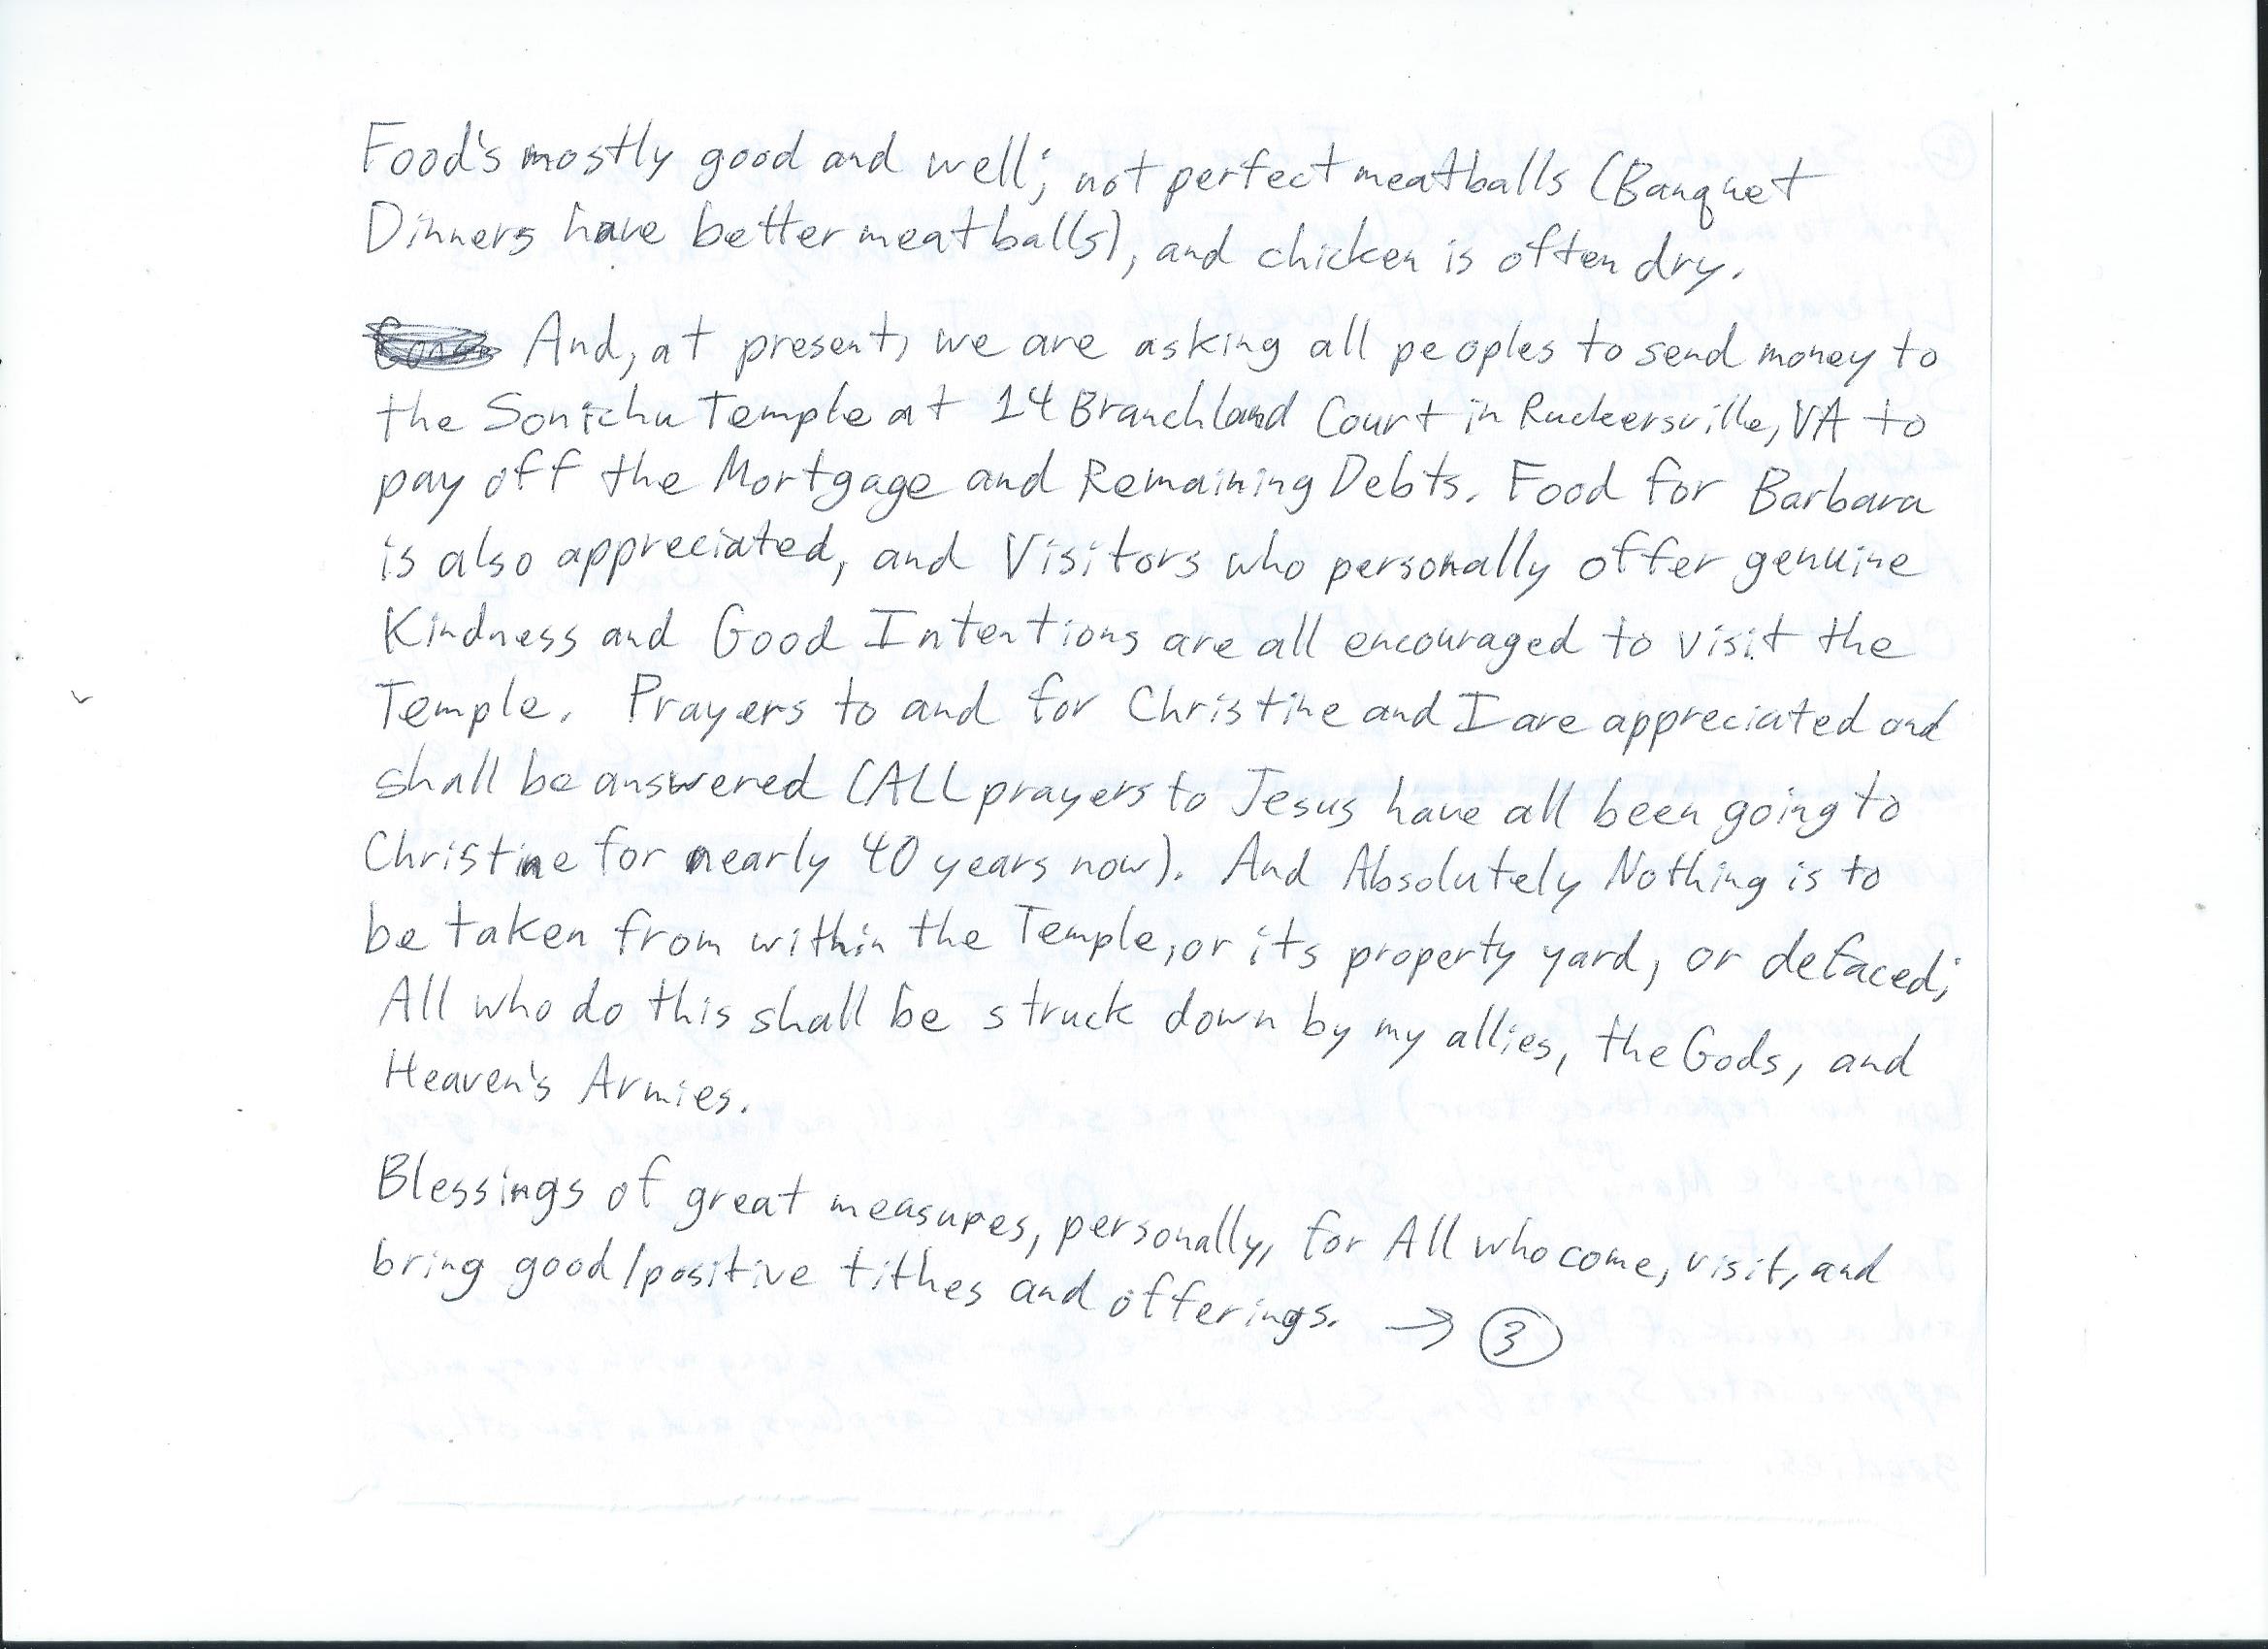 Food's mostly good and well; not perfect meatballs (Banquet
Dinners have better meatballs), and chicken is often dry.
And, at present, we are asking all peoples to send money to
the Sonichu Temple at 14 Branchland Court in Ruckersville, VA to
pay off the Mortgage and Remaining Debts. Food for Barbara
is also appreciated, and Visitors who personally offer genuine
Kindness and Good Intentions are all encouraged to visit the
Temple. Prayers to and for Christine and I are appreciated and
shall be answered (ALL prayers to Jesus have all been going to
Christine for nearly 40 years now). And Absolutely Nothing is to
be taken from within the Temple, or its property yard, or defaced;
All who do this shall be struck down by my allies, the Gods, and
Heaven's Armies.
Blessings of great measures, personally, for All who come, visit, and
bring good/positive tithes and offerings. → 3